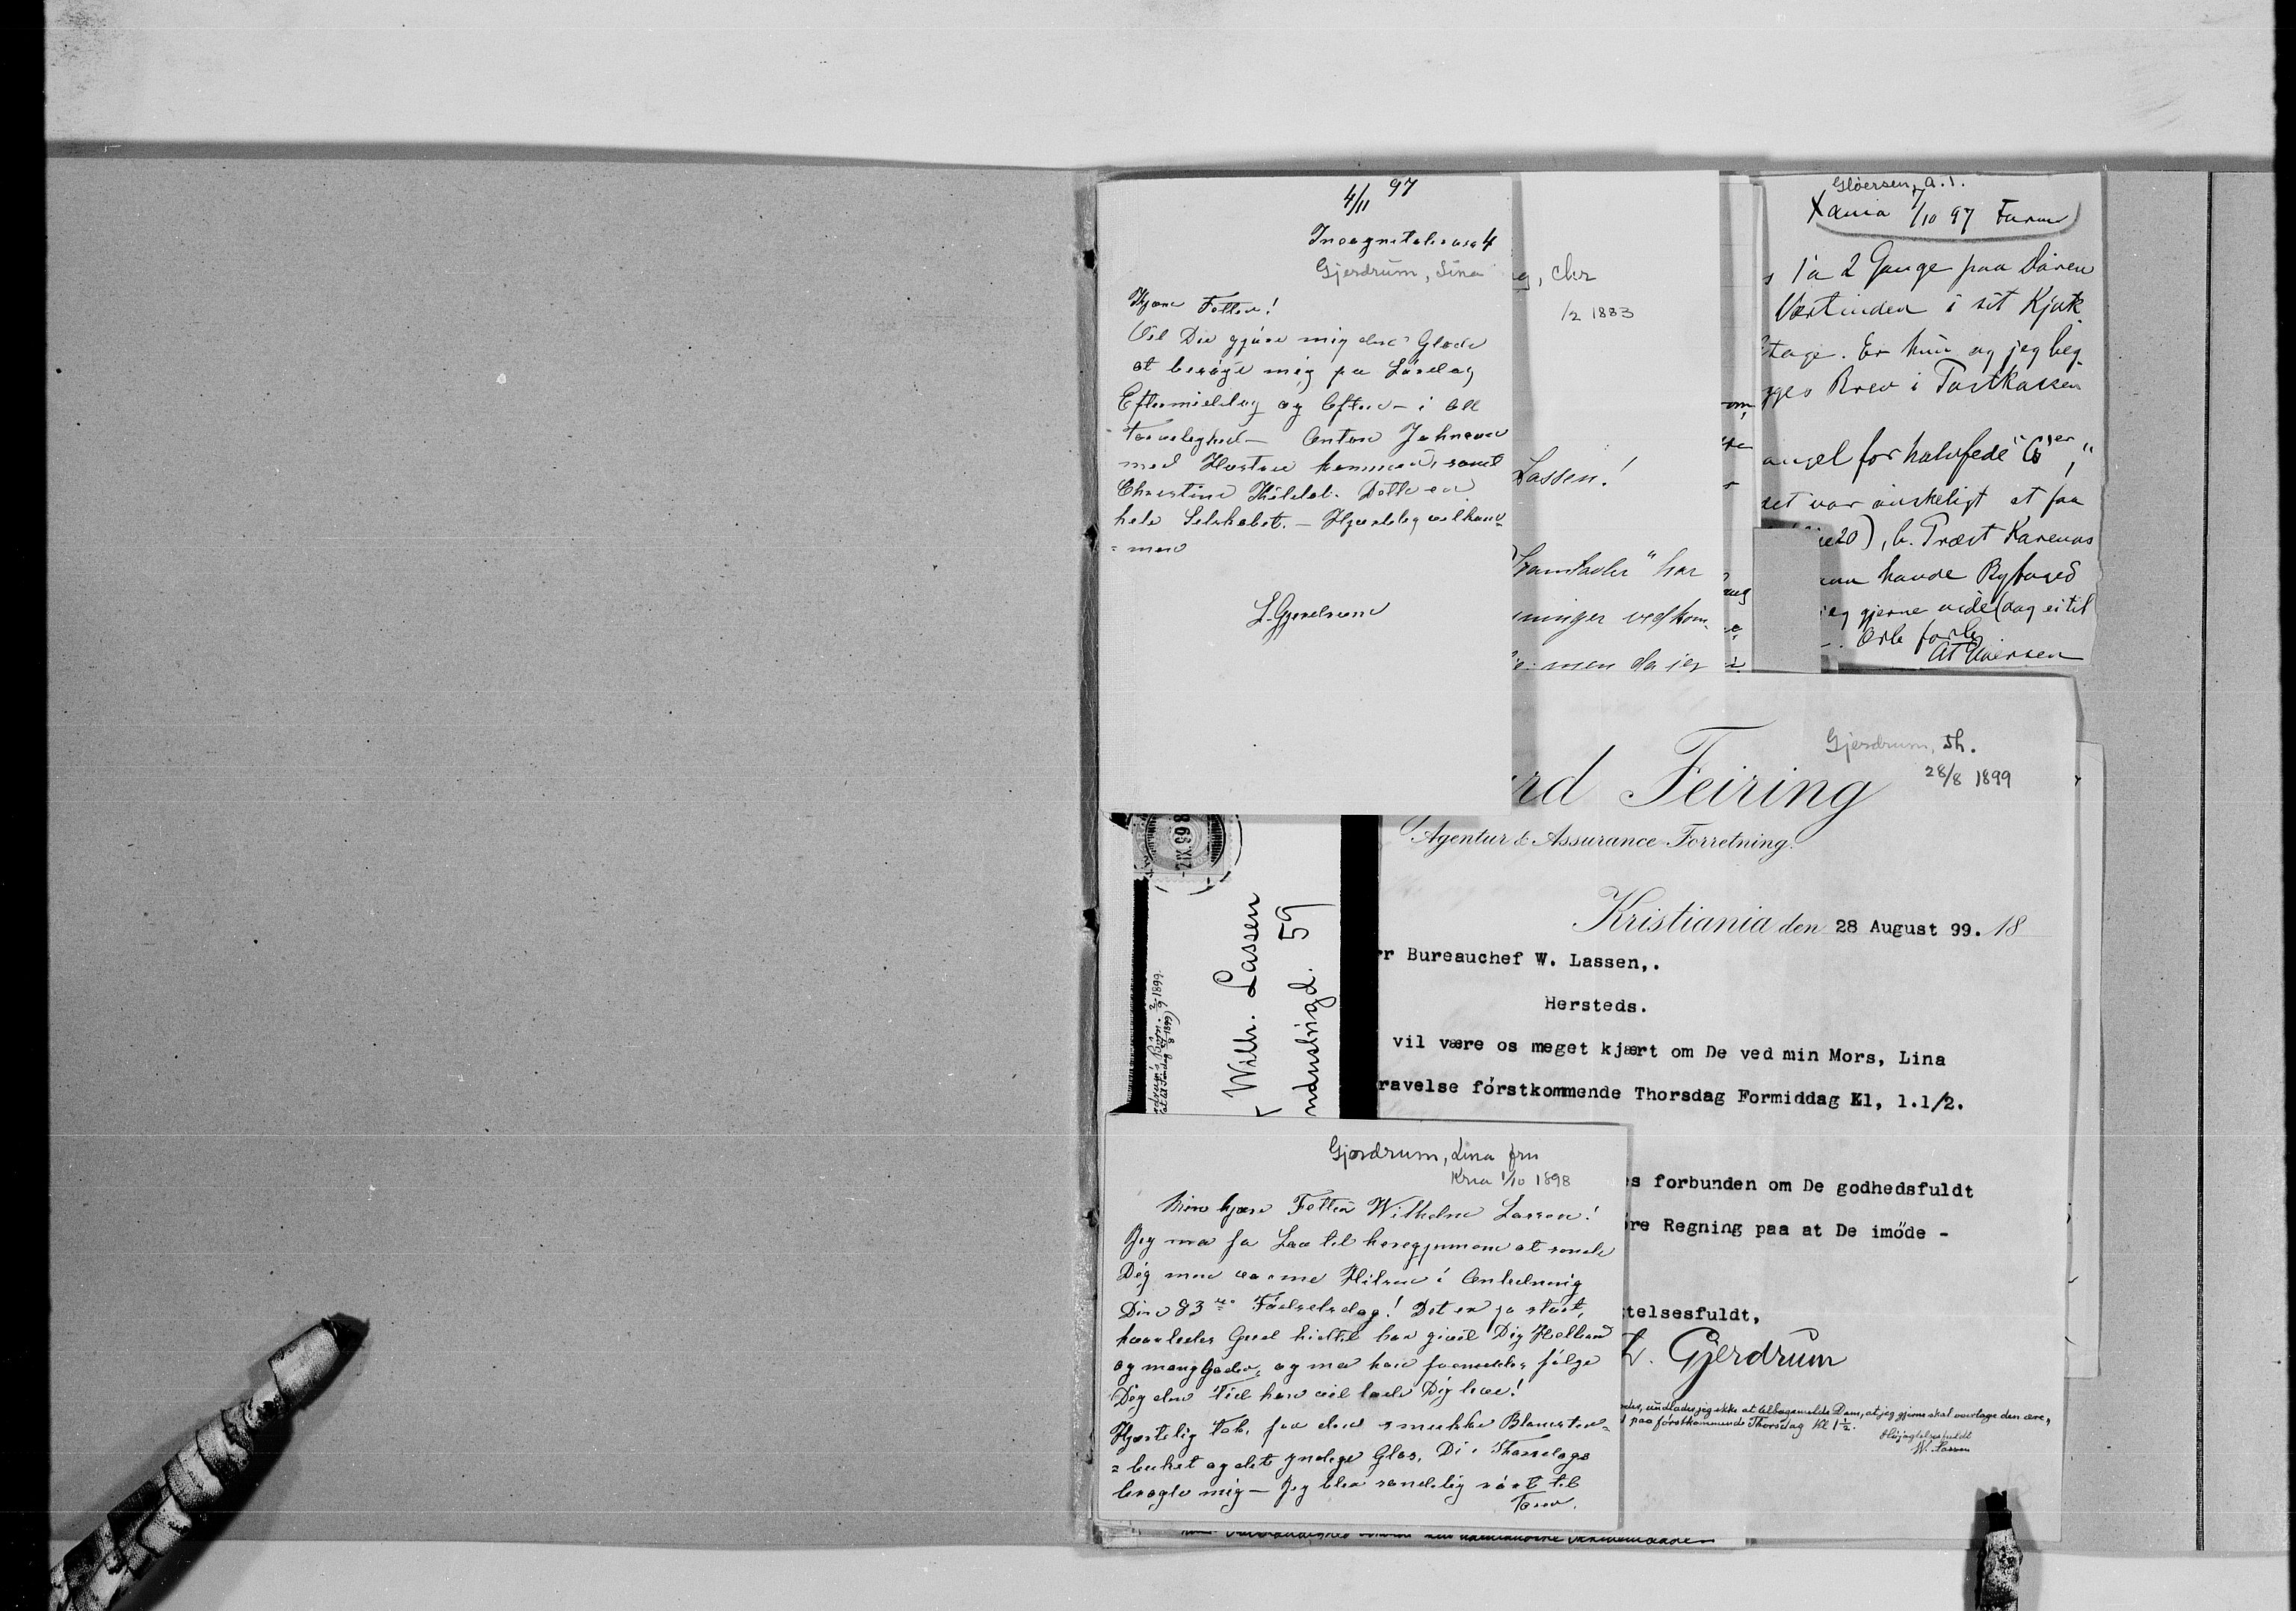 4/11 97
Incognitoterasse 4
Gjerdrum, Lina
Kjære Fetter!
Vil Du gjøre mig den Glæde
at besøge mig paa Lørdag
Eftermiddag og Aften – i all
Tarvelighed – Anton Johnsen
med Hustru kommer, samt
Christine Kildal. Dette er
hele Selskabet. – Hjertelig velkom=
= men
L. Gjerdrum
g, Chr
1/2 1883
Lassen!
har
ninger vedkom-
men da jeg
Gløersen, A. T.
Xania 1/10 97 Farvel
1 à 2 Gange paa Døren
Værtinden i sit Kjøk
Etage. Er hun og jeg beg
gges Brev i Postkassen
angel for halvfede "G'er",
det var ønskeligt at faa
20), b. Præst Karenus
havde Bygfoged
jeg gjerne vide (dog ei til
. Ærb forbl
AT Gløersen
Gjerdrum, Th.
28/8 1899
rd Feiring
Agentur & Assurance-Forretning.
Kristiania den 28 August 99. 18
rr Bureauchef W. Lassen,.
Hersteds.
vil være os meget kjært om De ved min Mors, Lina
ravelse førstkommende Thorsdag Formiddag Kl, 1.1/2.
es forbunden om De godhedsfuldt
øre Regning paa at De imøde -
telsesfuldt,
Gjerdrum
undlader jeg ikke at tilbagemelde Dem, at jeg gjerne skal overtage den ære,
paa førstkommende Thorsdag Kl 1½.
Høiagtelsesfuldt
W. Lassen
-2 IX 99 8
2/9 1899.
Wilh. Lassen
59
Gjerdrum, Lina fru
Kria 1/10 1898
Min kjære Fetter Wilhelm Lassen!
Jeg maa faa Lov til herigjennem at sende
Dig min varme Hilsen i Anledning
Din 83de Fødselsdag! Det er jo stort,
hvorledes Gud hidtil har givet Dig Helbred
og mang Goder, og maa han fremdeles følge
Dig den Tid han vil lade Dig leve!
Hjertelig Tak, for den smukke Blomster=
= buket og det yndige Glas, Du i Thorsdags
bragte mig – Jeg blev sandelig rørt til
Taarer.